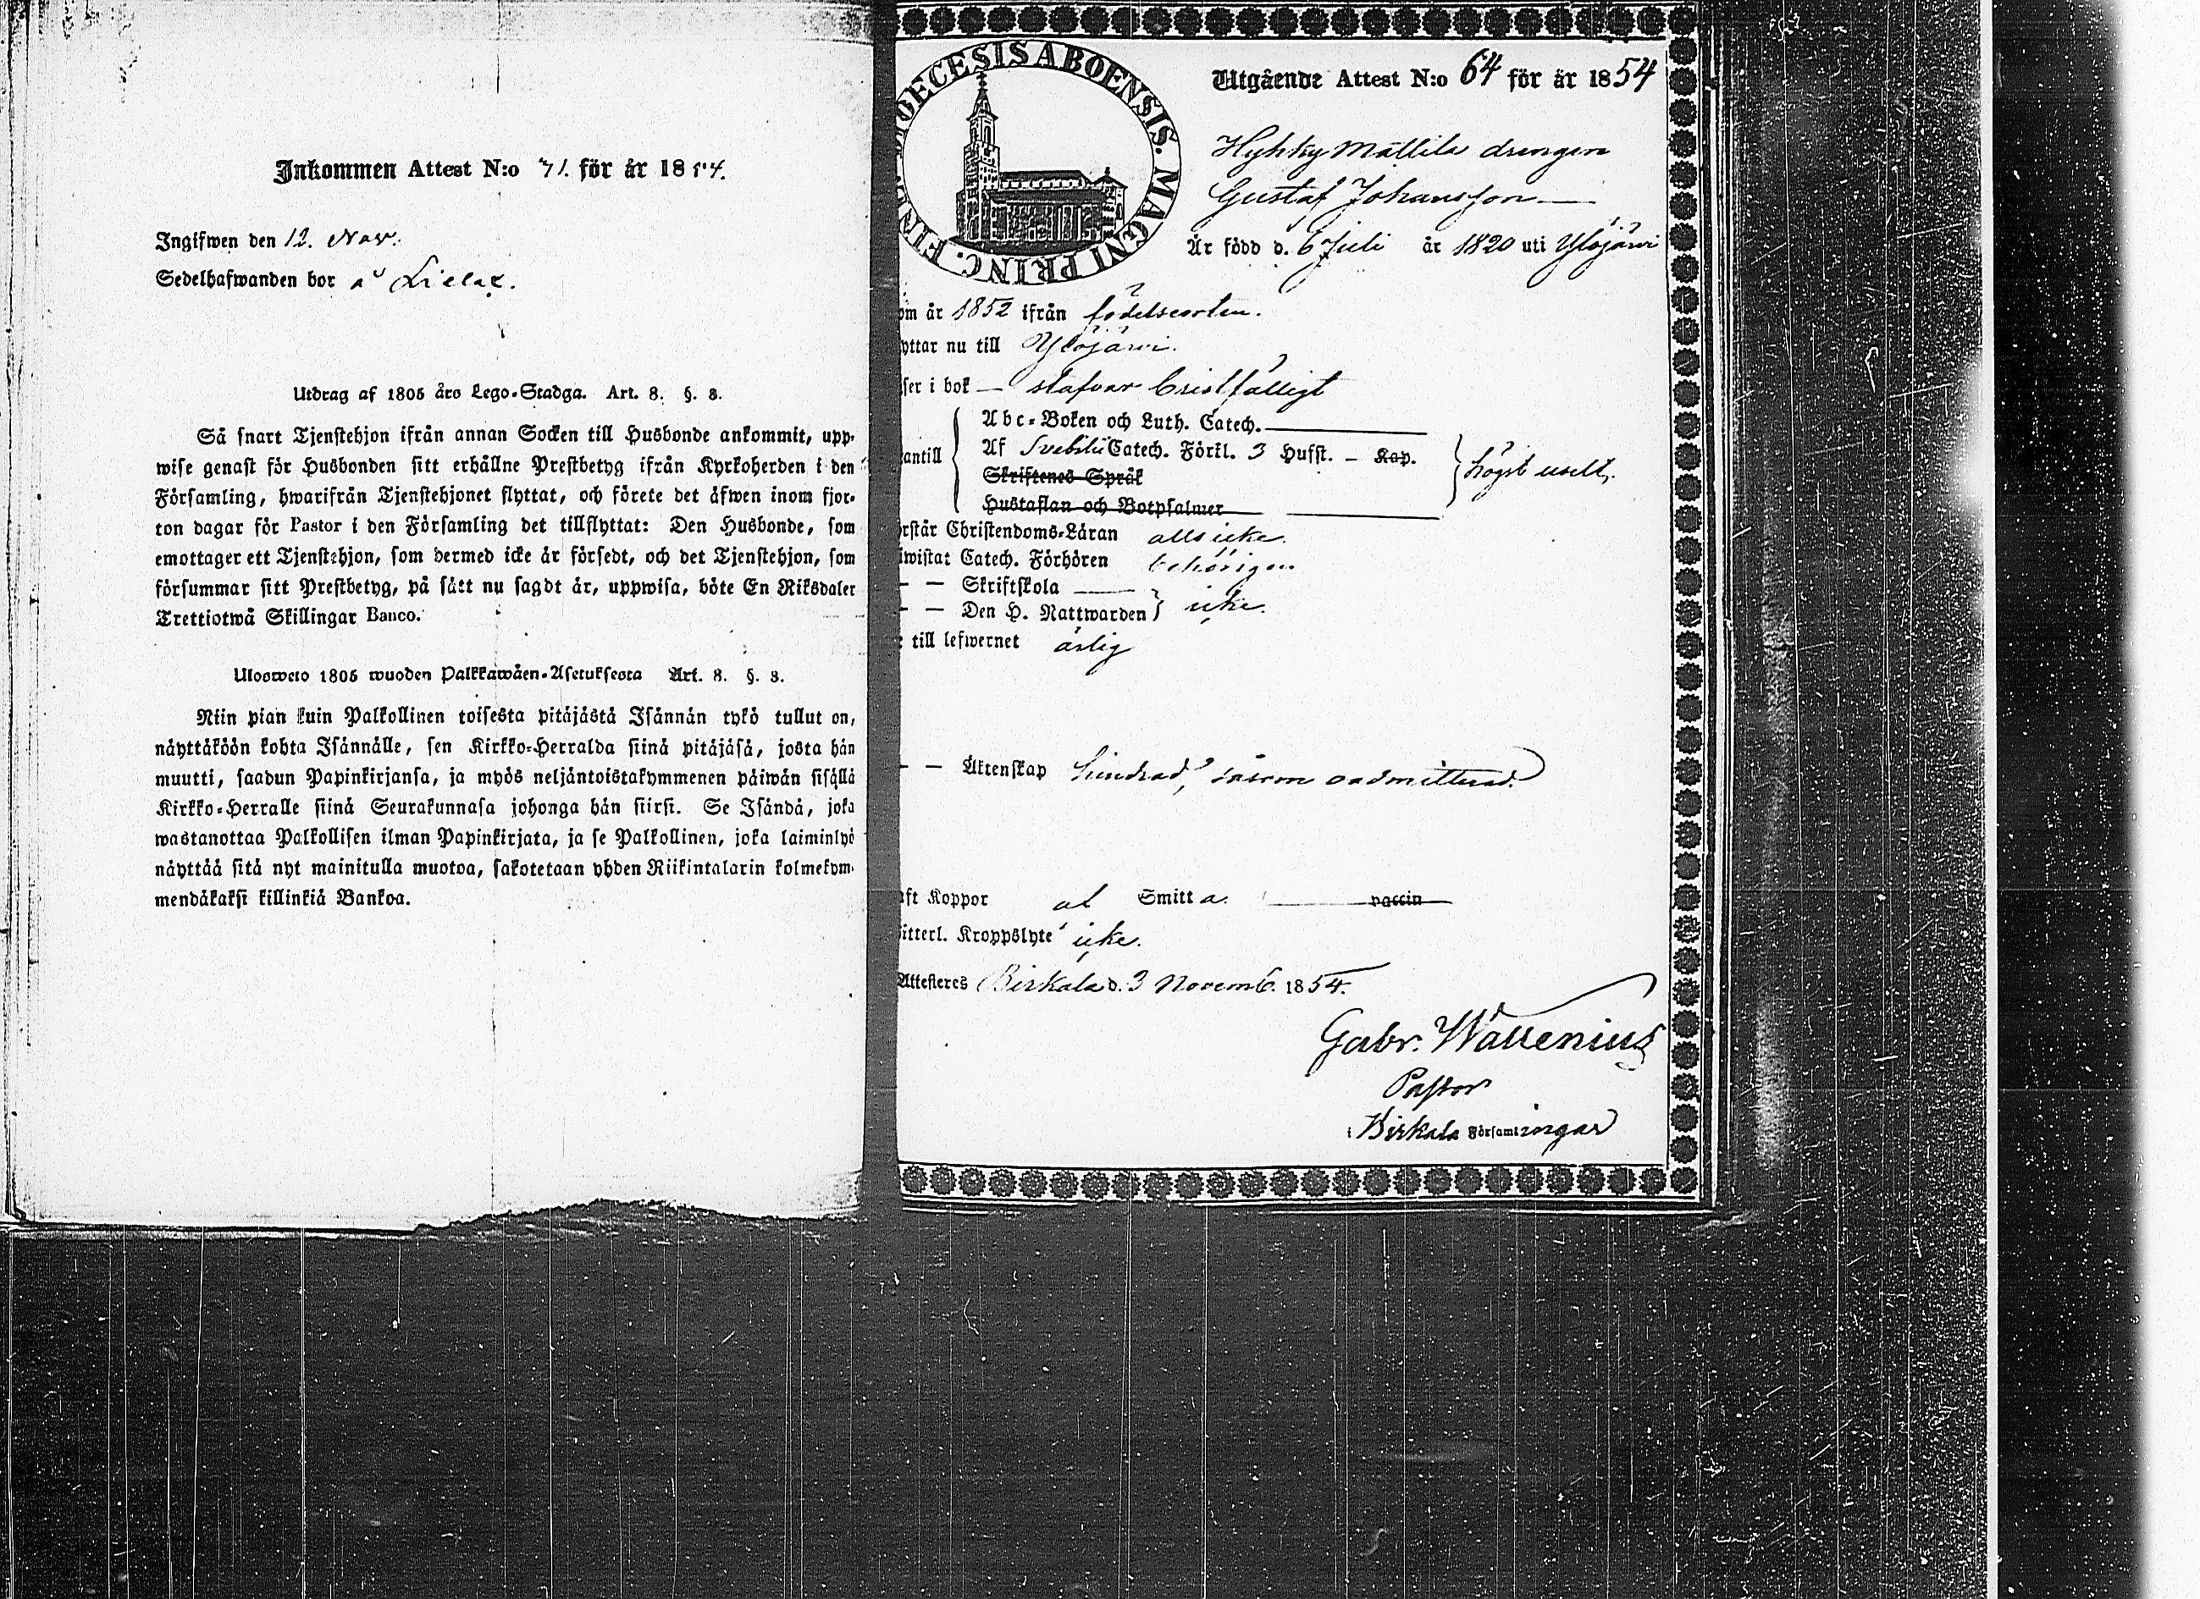 Inkommen Attest N:o 71. för år 1854.
Ingifwen den 12. Nov.
Sedelhafwanden bor å Lielax.
Utdrag af 1805 års Lego-Stadga. Art. 8. §. 8.
Så snart Tjenstehjon ifrån annan Socken till Husbonde ankommit, upp-
wise genast för Husbonden sitt erhållne Prestbetyg ifrån Kyrkoherden i den
Församling, hwarifrån Tjenstehjonet flyttat, och förete det äfwen inom fjor-
ton dagar för Pastor i den Församling det tillflyttat: Den Husbonde, som
emottager ett Tjenstehjon, som dermed icke är försedt, och det Tjenstehjon, som
försummar sitt Prestbetyg, på sätt nu sagdt är, uppwisa, böte En Riksdaler
Trettiotwå Skillingar Banco.
Ulosweto 1805 wuoden Palkkawäen-Asetuksesta Art. 8. §. 8.
Niin pian kuin Palkollinen toisesta pitäjästä Isännän tykö tullut on,
näyttäköön kohta Isännälle, sen Kirkko-Herralda siinä pitäjäsä, josta hän
muutti, saadun Papinkirjansa, ja myös neljäntoistakymmenen päiwän sisällä
Kirkko-Herralle siinä Seurakunnasa johonga hän siirsi. Se Isändä, joka
wastanottaa Palkollisen ilman Papinkirjata, ja se Palkollinen, joka laiminlyö
näyttää sitä nyt mainitulla muotoa, sakotetaan yhden Riikintalarin kolmekym-
mendäkaksi killinkiä Bankoa.
DIOECESIS ABOENSIS. MAGNI PRINC. FINL.
Utgående Attest N:o 64 för år 1854
Hyhky Mattila drengen
Gustaf Johansson
Är född d. 6 Juli år 1820 uti Ylöjärvi
om år 1852 ifrån födelseorten.
yttar nu till Ylöjärvi.
ser i bok — stafvar bristfälligt
Abc-Boken och Luth. Catech.
antill Af Svebilii Catech. Förkl. 3 Hufst. – Kap. högst uselt.
Skriftenes Språk
Hustaflan och Botpsalmer
örstår Christendoms-Läran alls icke.
iwistat Catech. Förhören behörigen
— — Skriftskola
— — Den H. Nattwarden icke.
till lefwernet ärlig
— — Äktenskap hindrad, såsom oadmitterad.
aft Koppor at Smitta. vaccin
itterl. Kroppslyte icke.
Attesteres Birkala d. 3 Novemb. 1854.
Gabr. Wallenius
Pastor
i Birkala Församlingar